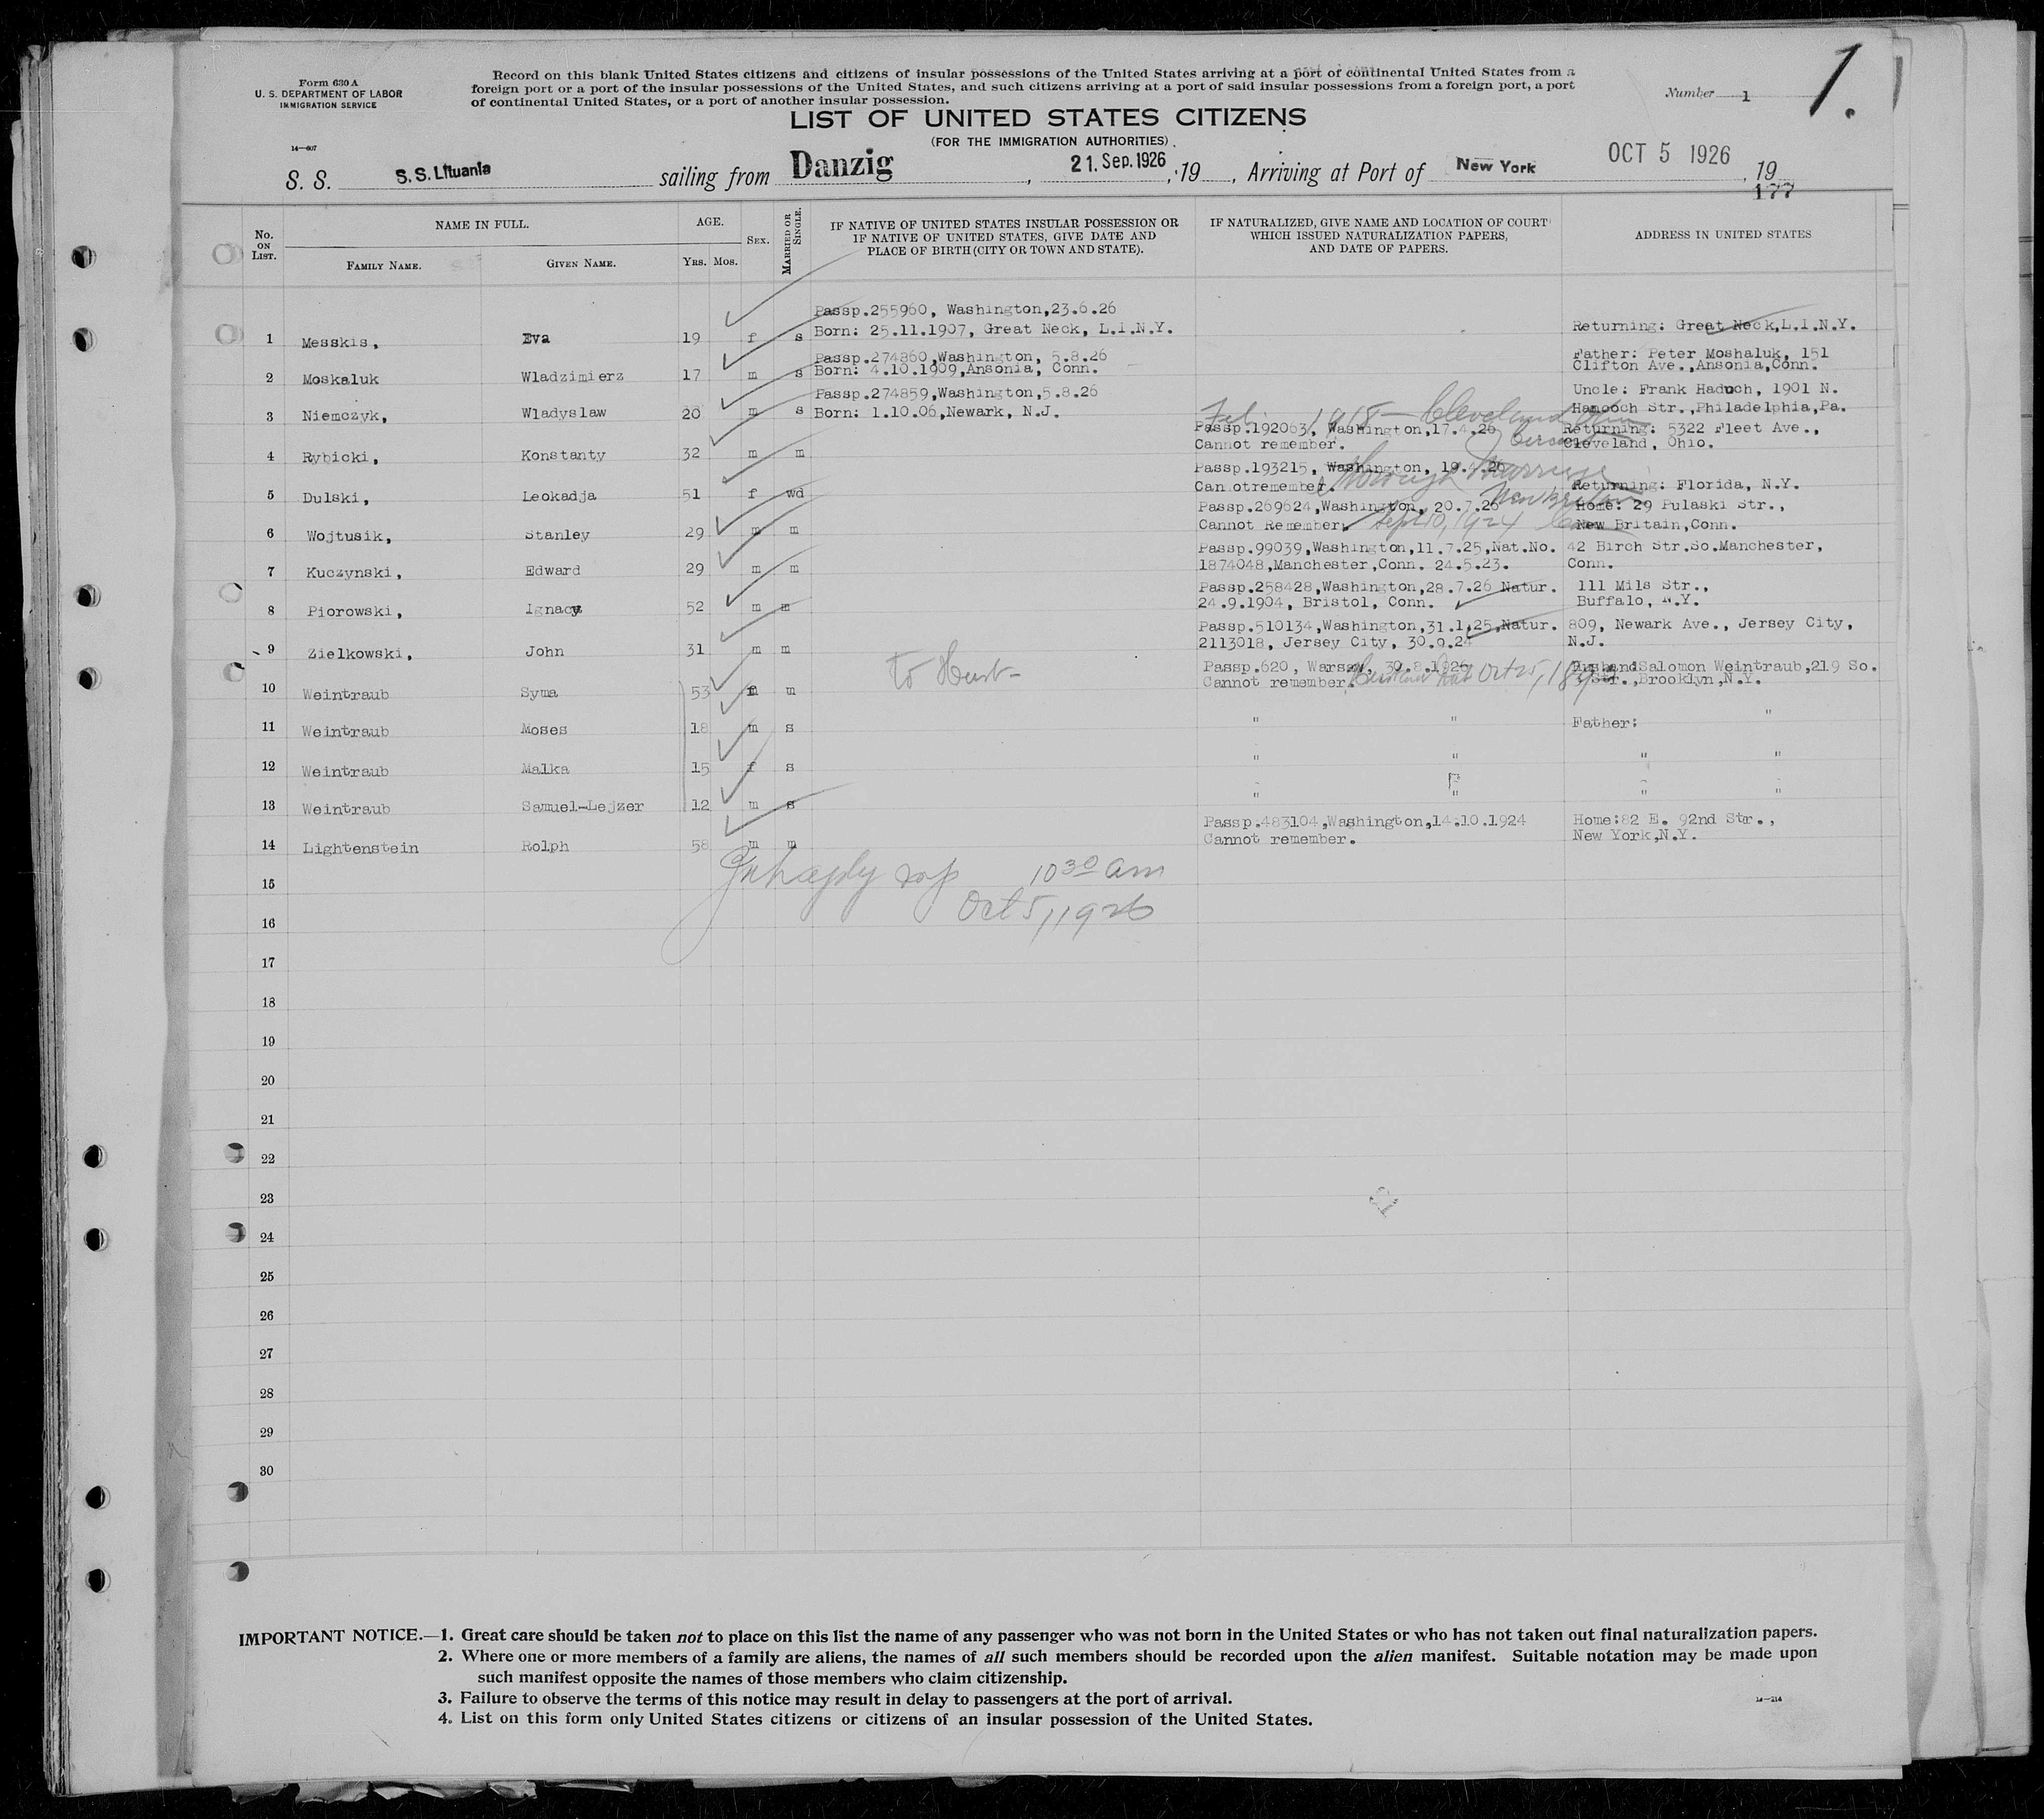 1.
Form 630 A
U. S. DEPARTMENT OF LABOR
IMMIGRATION SERVICE
14—607
Record on this blank United States citizens and citizens of insular possessions of the United States arriving at a port of continental United States from a
foreign port or a port of the insular possessions of the United States, and such citizens arriving at a port of said insular possessions from a foreign port, a port
of continental United States, or a port of another insular possession.
Number 1
LIST OF UNITED STATES CITIZENS
(FOR THE IMMIGRATION AUTHORITIES)
S. S. S.S. Lituania sailing from Danzig, 21. Sep. 1926, 19, Arriving at Port of New York OCT 5 1926, 19
177
No. ON LIST.
NAME IN FULL.
FAMILY NAME. GIVEN NAME.
AGE.
YRS. MOS.
SEX.
MARRIED OR SINGLE.
IF NATIVE OF UNITED STATES INSULAR POSSESSION OR
IF NATIVE OF UNITED STATES, GIVE DATE AND
PLACE OF BIRTH (CITY OR TOWN AND STATE).
IF NATURALIZED, GIVE NAME AND LOCATION OF COURT
WHICH ISSUED NATURALIZATION PAPERS,
AND DATE OF PAPERS.
ADDRESS IN UNITED STATES
Passp.255960, Washington,23.6.26
1 Messkis, Eva 19 f s Born: 25.11.1907, Great Neck, L.I.N.Y. Returning: Great Neck,L.I.N.Y.
Passp.274860,Washington, 5.8.26 Father: Peter Moshaluk, 151
2 Moskaluk Wladzimierz 17 m s Born: 4.10.1909,Ansonia, Conn. Clifton Ave.,Ansonia,Conn.
Passp.274859,Washington,5.8.26 Uncle: Frank Haduch, 1901 N.
3 Niemczyk, Wladyslaw 20 m s Born: 1.10.06,Newark, N.J. Hancoch Str.,Philadelphia,Pa.
Feb. 1918 — Cleveland Ohio
Passp.192063, Washington,17.4.26 Returning: 5322 Fleet Ave.,
4 Rybicki, Konstanty 32 m m Cannot remember. Cleveland, Ohio.
Passp.193215, Washington, 19.4.26
5 Dulski, Leokadja 51 f wd Cannotremember. Returning: Florida, N.Y.
New Britain
Passp.269624,Washington, 20.7.26 Home: 29 Pulaski Str.,
6 Wojtusik, Stanley 29 m m Cannot Remember. Sept 10, 1924 Conn New Britain,Conn.
Passp.99039,Washington,11.7.25,Nat.No. 42 Birch Str.So.Manchester,
7 Kuczynski, Edward 29 m m 1874048,Manchester,Conn. 24.5.23. Conn.
Passp.258428,Washington,28.7.26 Natur. 111 Mils Str.,
8 Piorowski, Ignacy 52 m m 24.9.1904, Bristol, Conn. Buffalo, N.Y.
Passp.510134,Washington,31.1.25,Natur. 809, Newark Ave., Jersey City,
9 Zielkowski, John 31 m m 2113018, Jersey City, 30.9.24 N.J.
To Husb- Passp.620, Warsaw, 30.8.1926 Husband:Salomon Weintraub,219 So.
10 Weintraub Syma 53 f m Cannot remember. Husband Nat Oct 25, Str.,Brooklyn,N.Y.
11 Weintraub Moses 18 m s " " Father: "
12 Weintraub Malka 15 f s " " " "
13 Weintraub Samuel-Lejzer 12 m s " " " "
Passp.483104,Washington,14.10.1924 Home:82 E. 92nd Str.,
14 Lightenstein Rolph 58 m m Cannot remember. New York,N.Y.
15
10 30 am
Oct 5, 1926
16
17
18
19
20
21
22
23
24
25
26
27
28
29
30
IMPORTANT NOTICE.—1. Great care should be taken not to place on this list the name of any passenger who was not born in the United States or who has not taken out final naturalization papers.
2. Where one or more members of a family are aliens, the names of all such members should be recorded upon the alien manifest. Suitable notation may be made upon
such manifest opposite the names of those members who claim citizenship.
3. Failure to observe the terms of this notice may result in delay to passengers at the port of arrival.
4. List on this form only United States citizens or citizens of an insular possession of the United States.
14—214